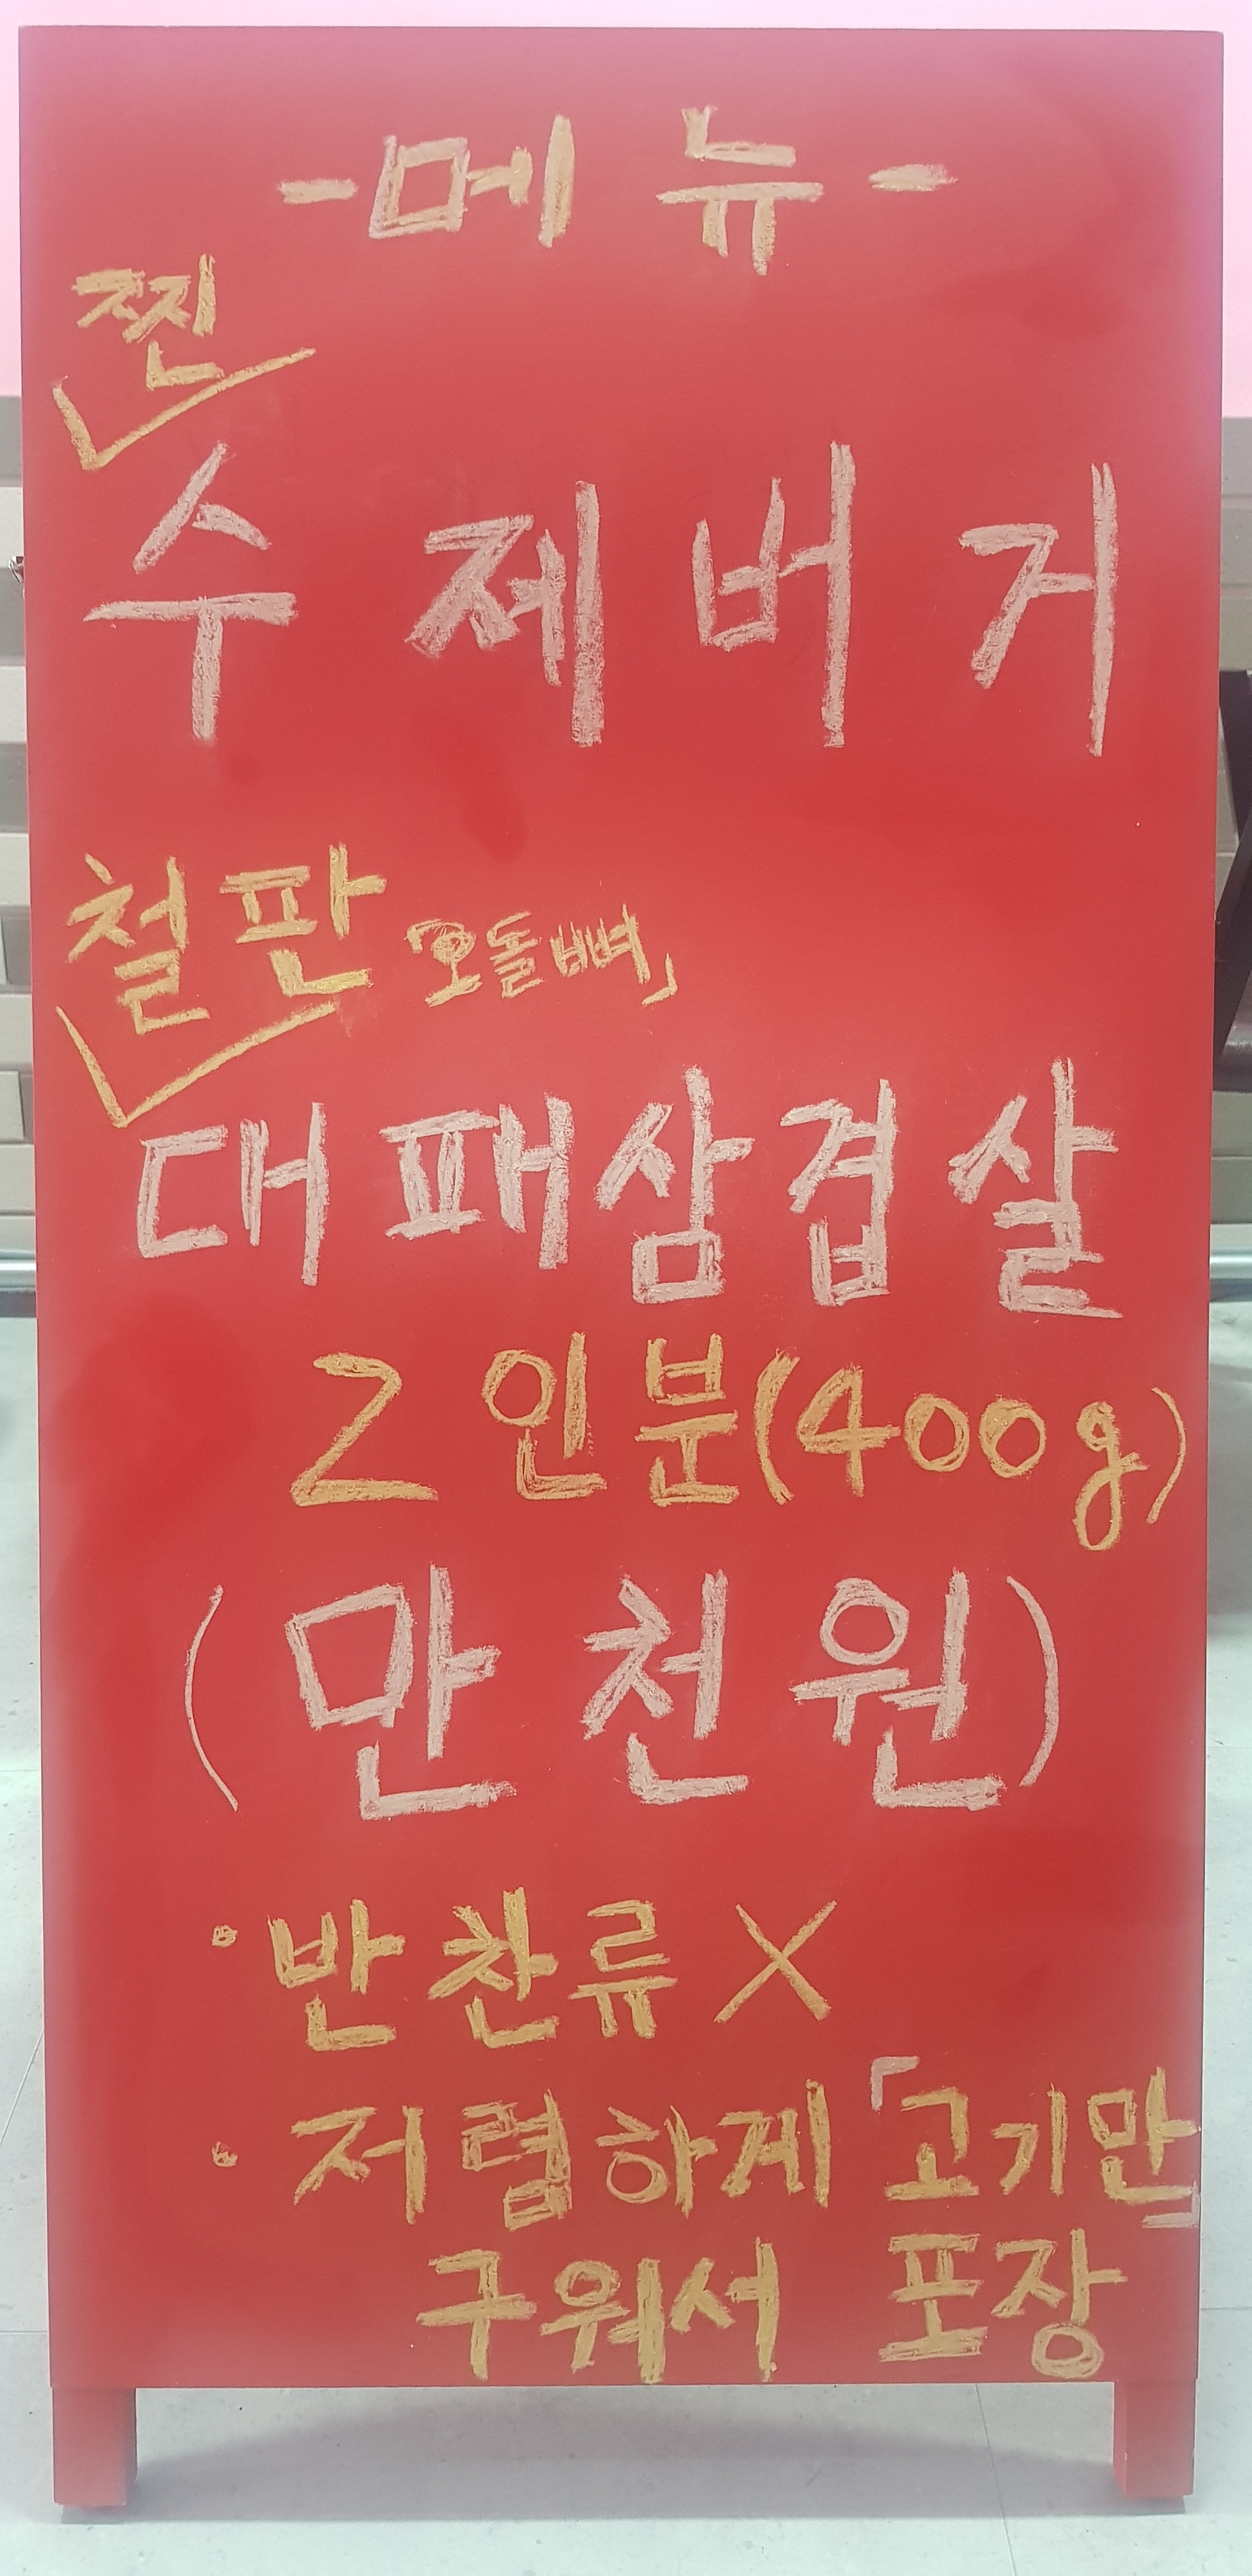 -메뉴-
찐
수제버거
철판 「오돌뼈」
대패삼겹살
2인분(400g)
(만천원)
·반찬류 X
·저렴하게 「고기만」
구워서 포장